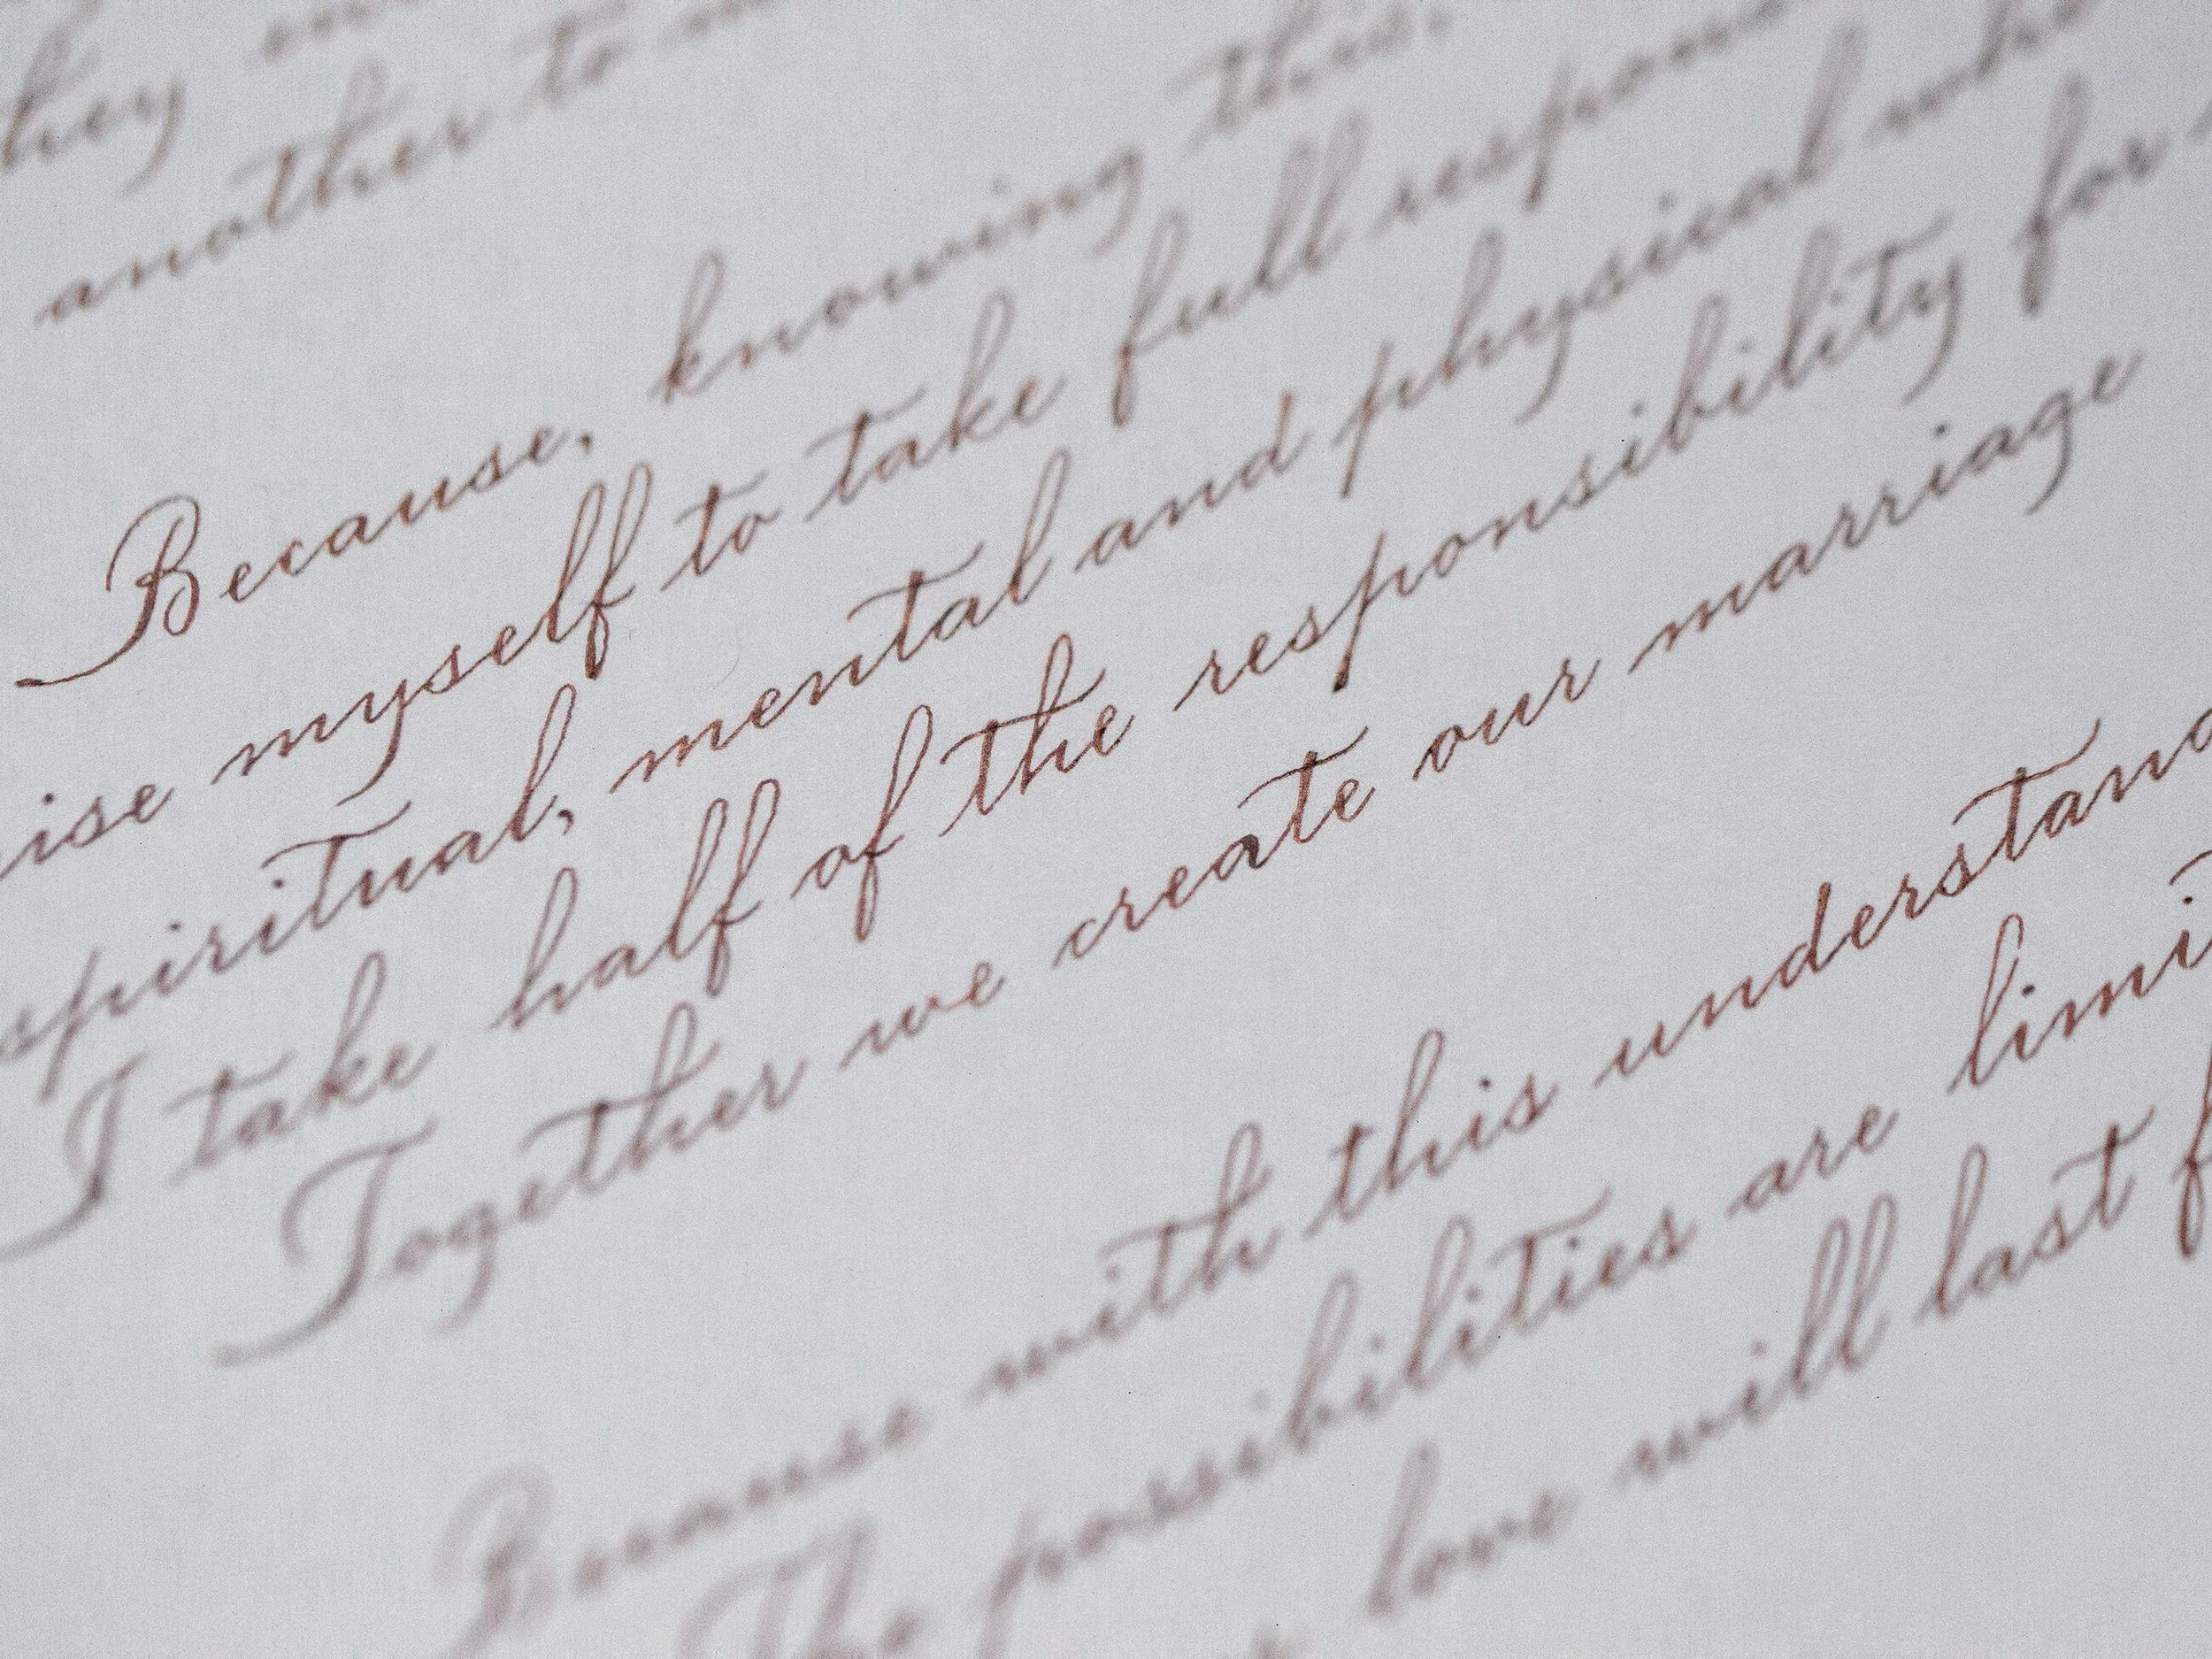 they
another to
Because, knowing this,
ise myself to take full respons
spiritual, mental and physical who
I take half of the responsibility for
Together we create our marriage
Because with this understand
The possibilities are limit
love will last f